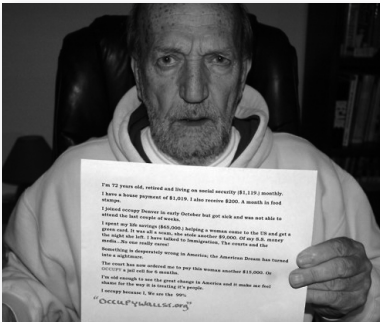 I'm 72 years old, retired and living on social security ($1,119.) monthly.
I have a house payment of $1,019. I also receive $200. A month in food
stamps.
I joined occupy Denver in early October but got sick and was not able to
attend the last couple of weeks.
I spent my life savings ($65,000.) helping a woman come to the US and get a
green card. It was all a scam, she stole another $9,000. Of my U.S. money
the night she left. I have talked to Immigration, The courts and the
media...No one really cares!
Something is desperately wrong in America; the American Dream has turned
into a nightmare.
The court has now ordered me to pay this woman another $10,000. Or
OCCUPY a jail cell for 6 months.
I'm old enough to see the great change in America and it make me feel
shame for the way it is treating it's people.
I occupy because I, We are the 99%
"OCCUPYWALLST.org"